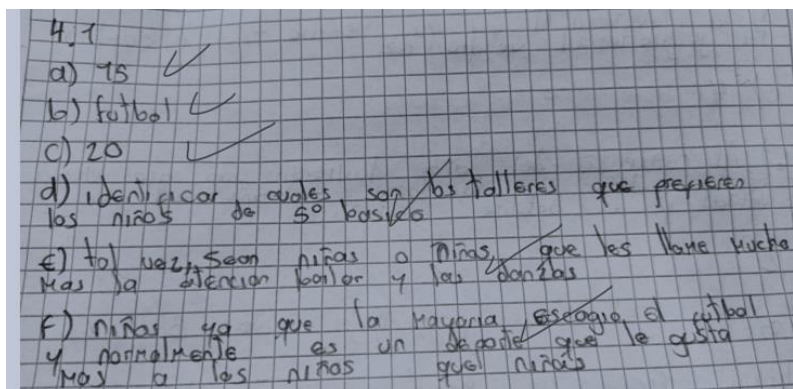 4.1
a) 15
b) futbol
c) 20
d) identificar cuales son los talleres que prefieren
los niños de 5º basico
e) tal vez, sean niñas o niñas, que les llame mucho
mas la atencion bailar y las danzas
f) niños ya que la mayoria escogio el futbol
y normalmente es un deporte que le gusta
mas a los niños que niñas